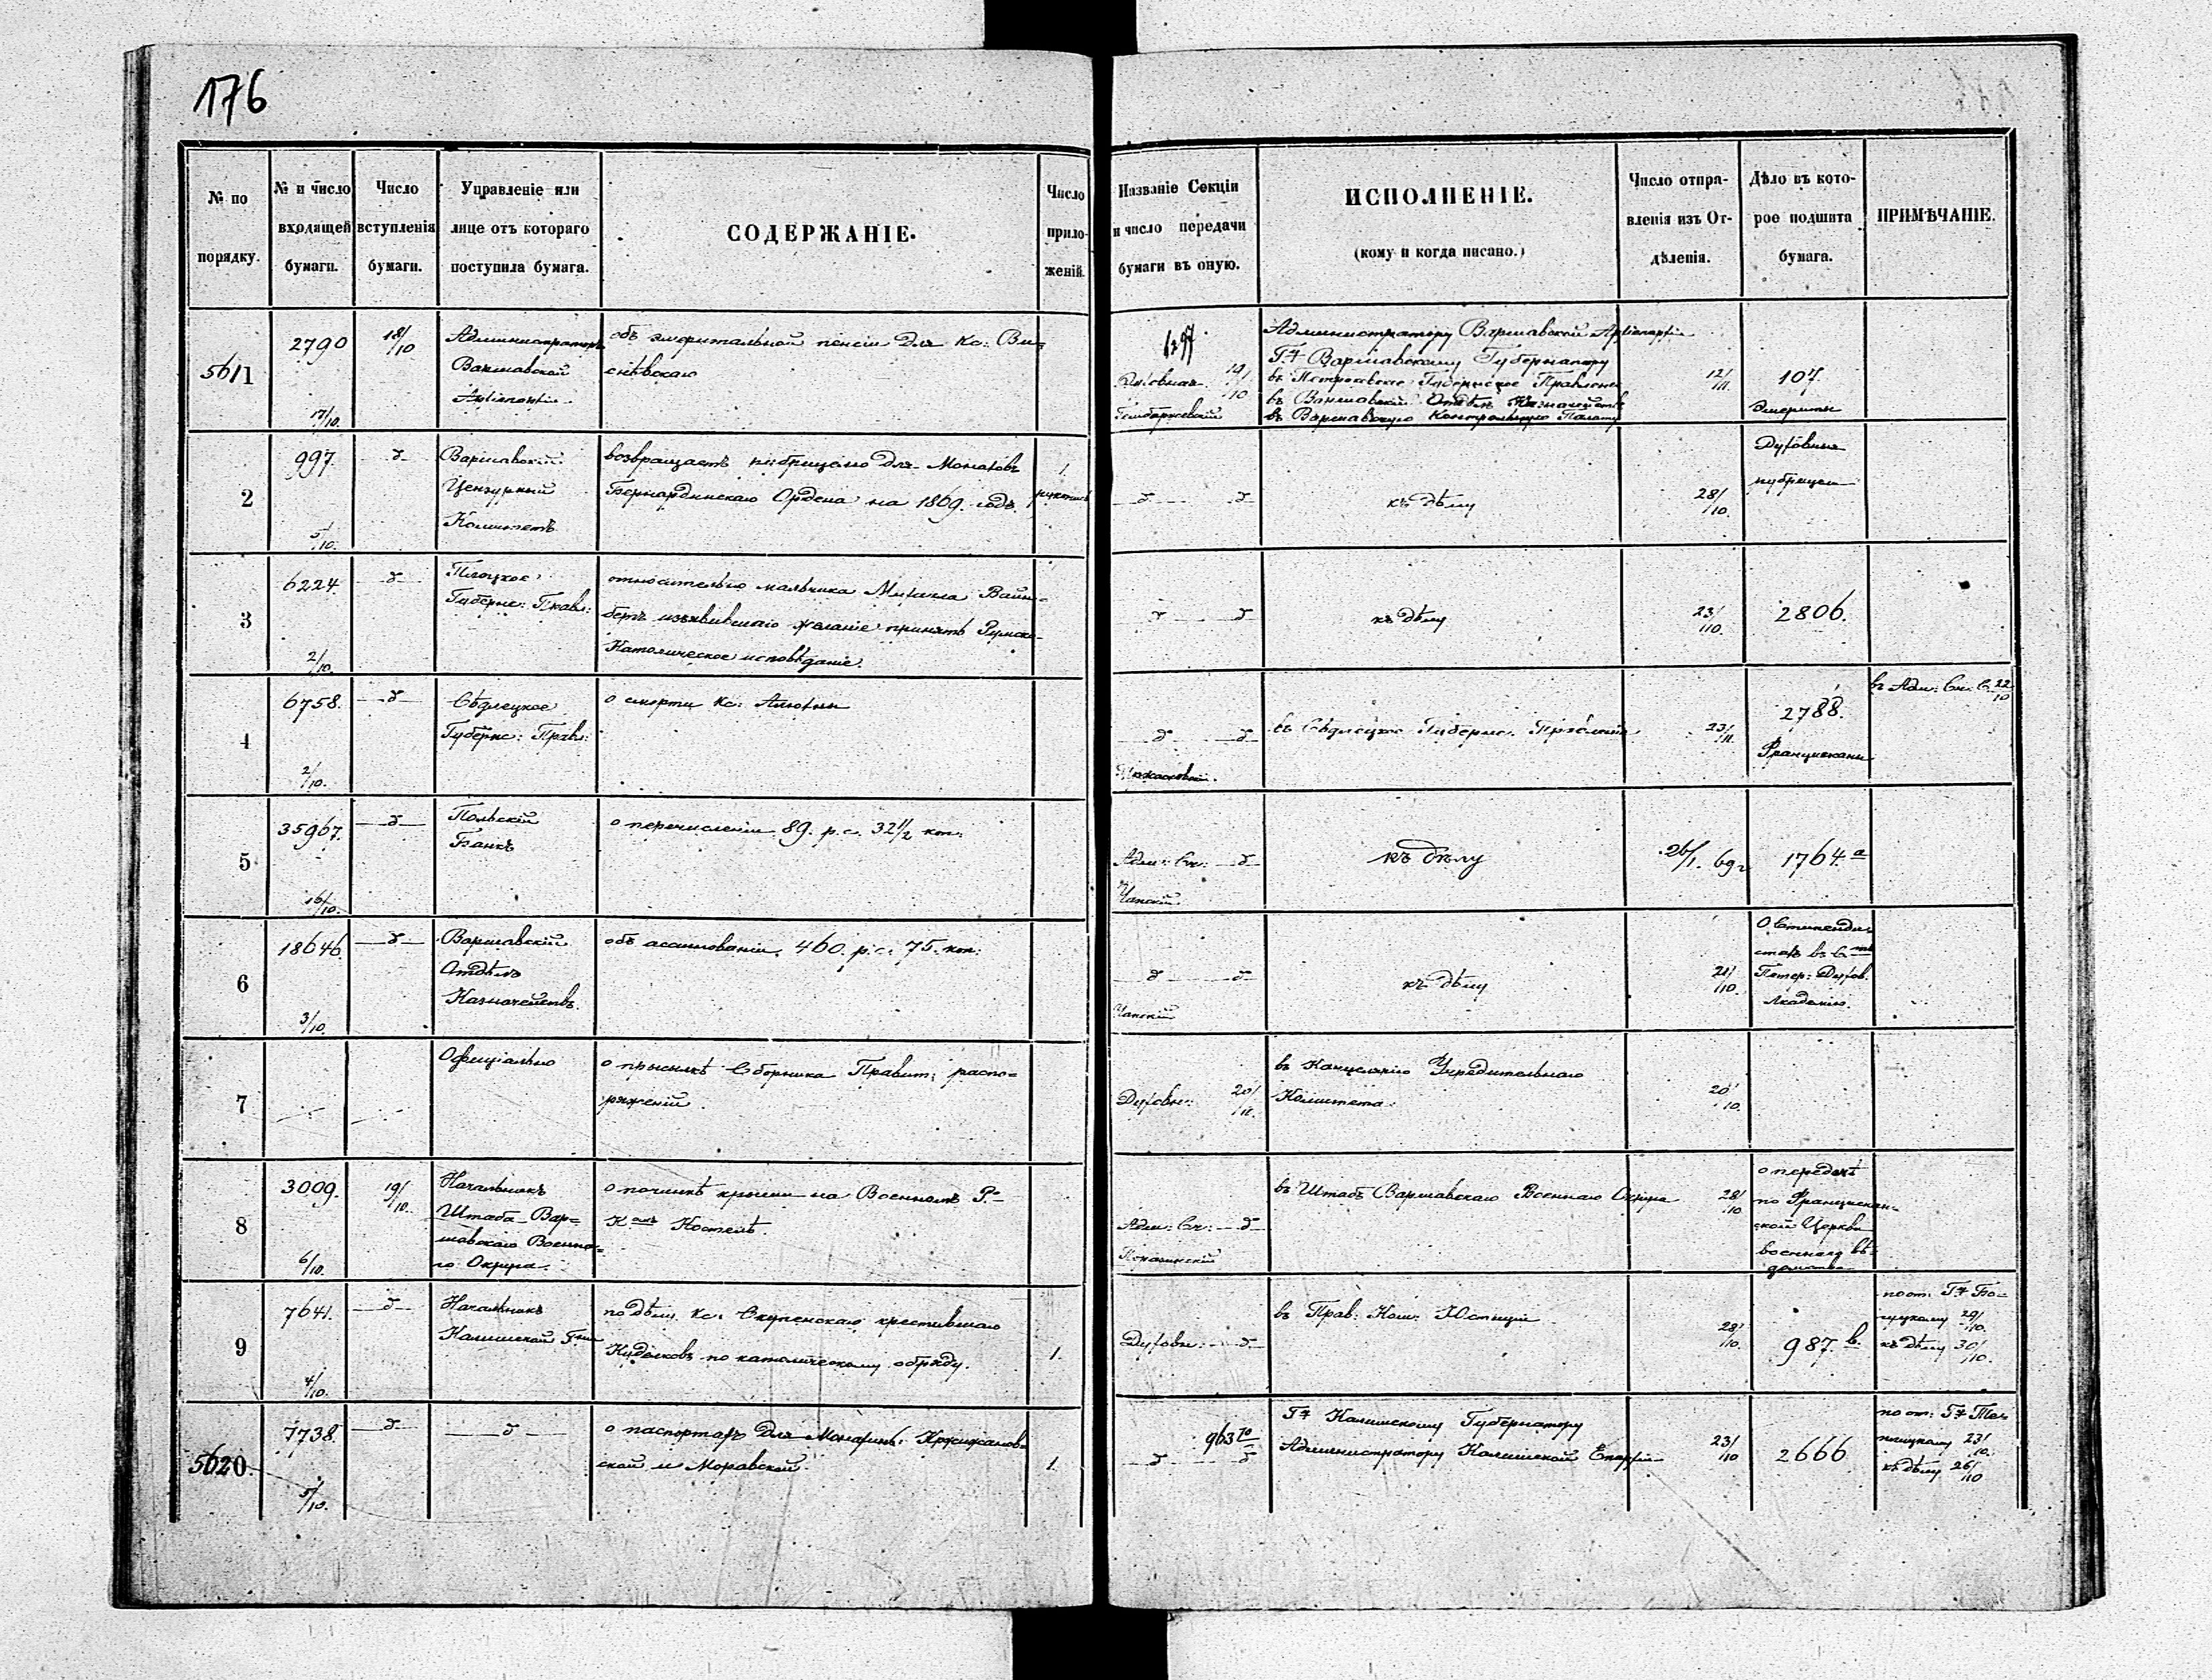 176
№ по порядку.
№ и число входящей бумаги.
Число вступленія бумаги.
Управленіе или лице отъ котораго поступила бумага.
СОДЕРЖАНІЕ.
Число приложеній.
Названіе Секціи и число передачи бумаги въ оную.
ИСПОЛНЕНІЕ.
(кому и когда писано.)
Число отправленія изъ Отдѣленія.
Дѣло въ которое подшита бумага.
ПРИМѢЧАНІЕ.
5611
2790
17/10.
18/10
Администраторъ
Варшавской
Архіепархіи
объ эмеритальной пенсіи для Кс: Ви-
снѣвскаго
Духовная 19/10
Администратору Варшавской Архіепархіи
Г. Варшавскому Губернатору
въ Петроковское Губернское Правленіе
въ Варшавскій Отдѣлъ Казначействъ
въ Варшавскую Контрольную Палату
12/11.
107.
Эмериты
2
997.
5/10.
Варшавскій
Цензурный
Комитетъ
возвращаетъ рубрицеллю для Монаховъ
Бернардинскаго Ордена на 1869. годъ.
1
къ дѣлу
28/10.
Духовныя
рубрицели
3
6224.
2/10.
Плоцкое
Губернс: Правл:
относительно мальчика Михаила Вайн-
бергъ изъявившаго желаніе принять Римско-
Католическое исповѣданіе.
къ дѣлу
23/10.
2806.
4
6758.
2/10.
Сѣдлецкое
Губернс: Правл:
о смерти Кс:
въ Сѣдлецкое Губернс. Правленіе
23/11.
2788.
Францискане
въ Адм: Ск: С. 22/10
5
35967.
16/10.
Польскій
Банкъ
о перечисленіи 89. р. с. 32 1/2 коп.
Адм: Ск:
Чапскій
къ дѣлу
26/1. 69 г
1764.а
6
18646.
3/10.
Варшавскій
Отдѣлъ
Казначействъ.
объ ассигнованіи 460. р. с. 75. коп:
Чапскій
къ дѣлу
21/10.
О Стипендіа-
тахъ въ С
Петер: Духов.
Академію.
7
Офиціально
о присылкѣ Сборника Правит: распо-
ряженій.
Духовн: 20/10.
въ Канцелярію Учредительнаго
Комитета.
20/10.
8
3009.
6/10.
19/10.
Начальникъ
Штаба Вар-
шавскаго Военна-
го Округа.
о починкѣ крыши на Военномъ Р.-
К омъ Костелѣ.
Адм: Ск:
въ Штабъ Варшавскаго Военнаго Округа
28/10
о передачѣ
по Францискан-
ской Церкви
военнаго вѣ-
домства
9
7641.
4/10.
Начальникъ
Калишской Г
по дѣлу Кс: Скупенскаго крестившаго
Куделковъ по католическому обряду.
1.
Духовн:
въ Прав: Ком: Юстиціи
28/10.
987.в.
по от: Г.
29/10.
къ дѣлу 30/10.
5620.
7738.
5/10.
о паспортахъ для Монахинь: Кржижанов-
ской и Моравской.
1.
963
Г. Калишскому Губернатору
Администратору Калишской Епархіи
23/10
2666
по от: Г.
23/10.
къ дѣлу 26/10